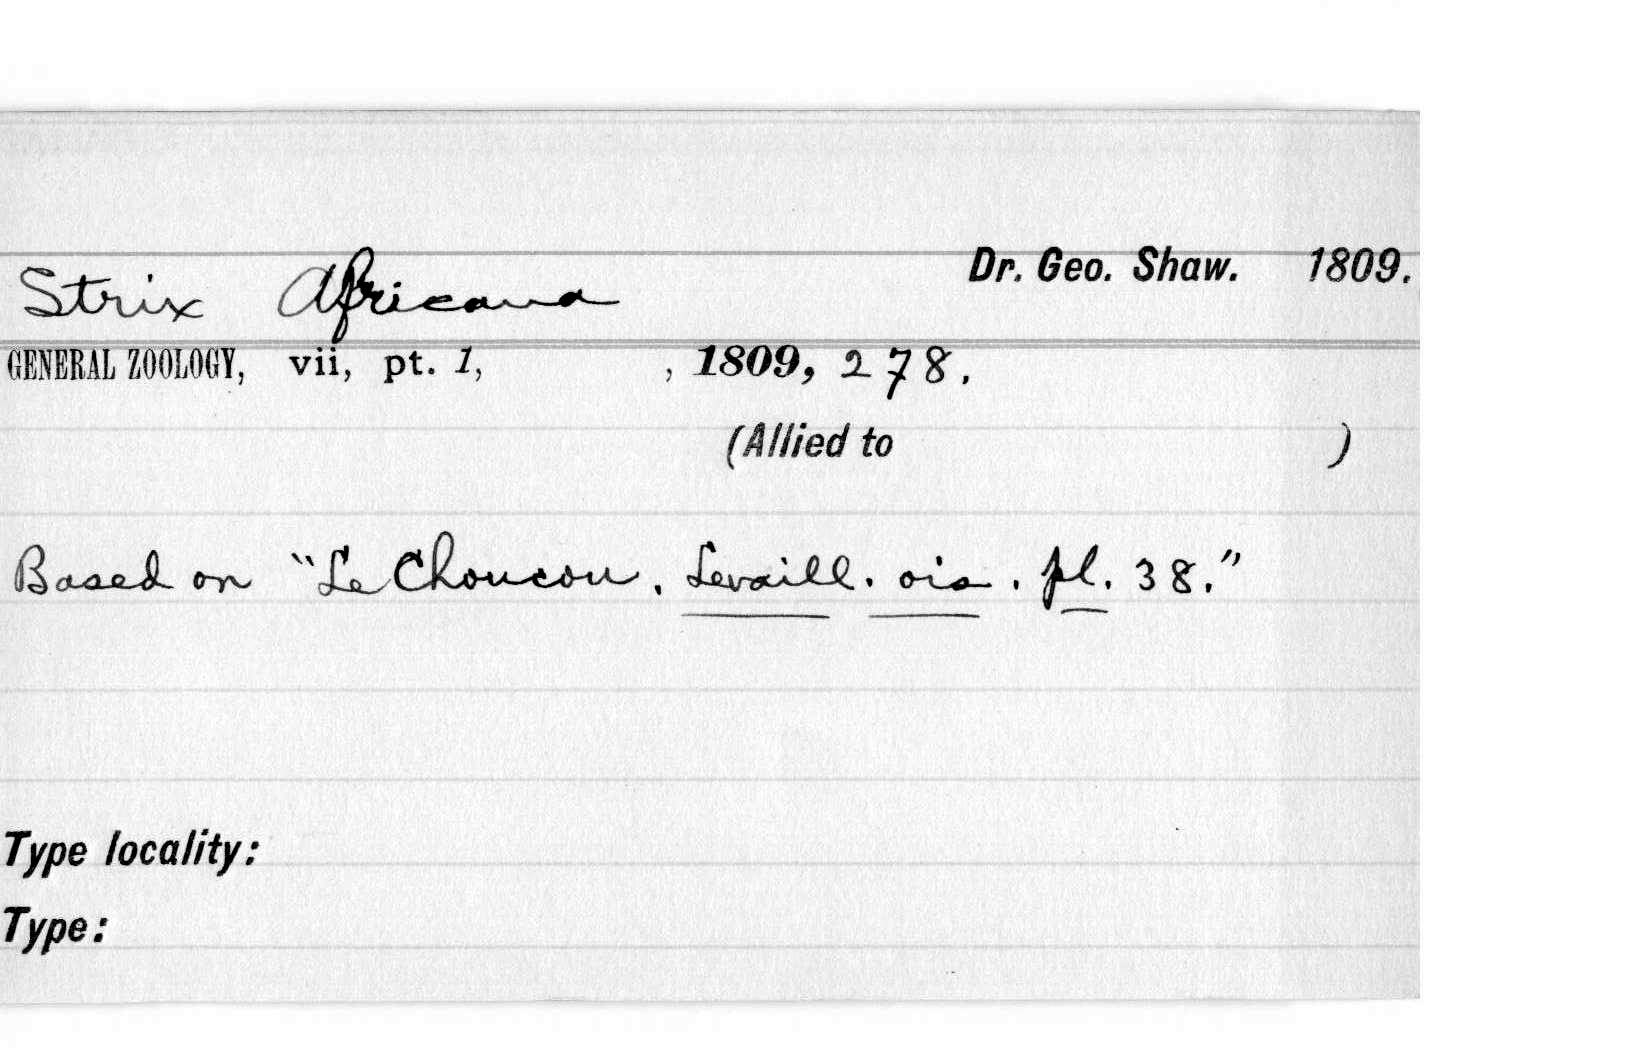 Strix Africana Dr. Geo. Shaw. 1809.
GENERAL ZOOLOGY, vii, pt. 1, , 1809, 278.
(Allied to )
Based on "Le Choucou. Levaill. ois. pl. 38."
Type locality:
Type: